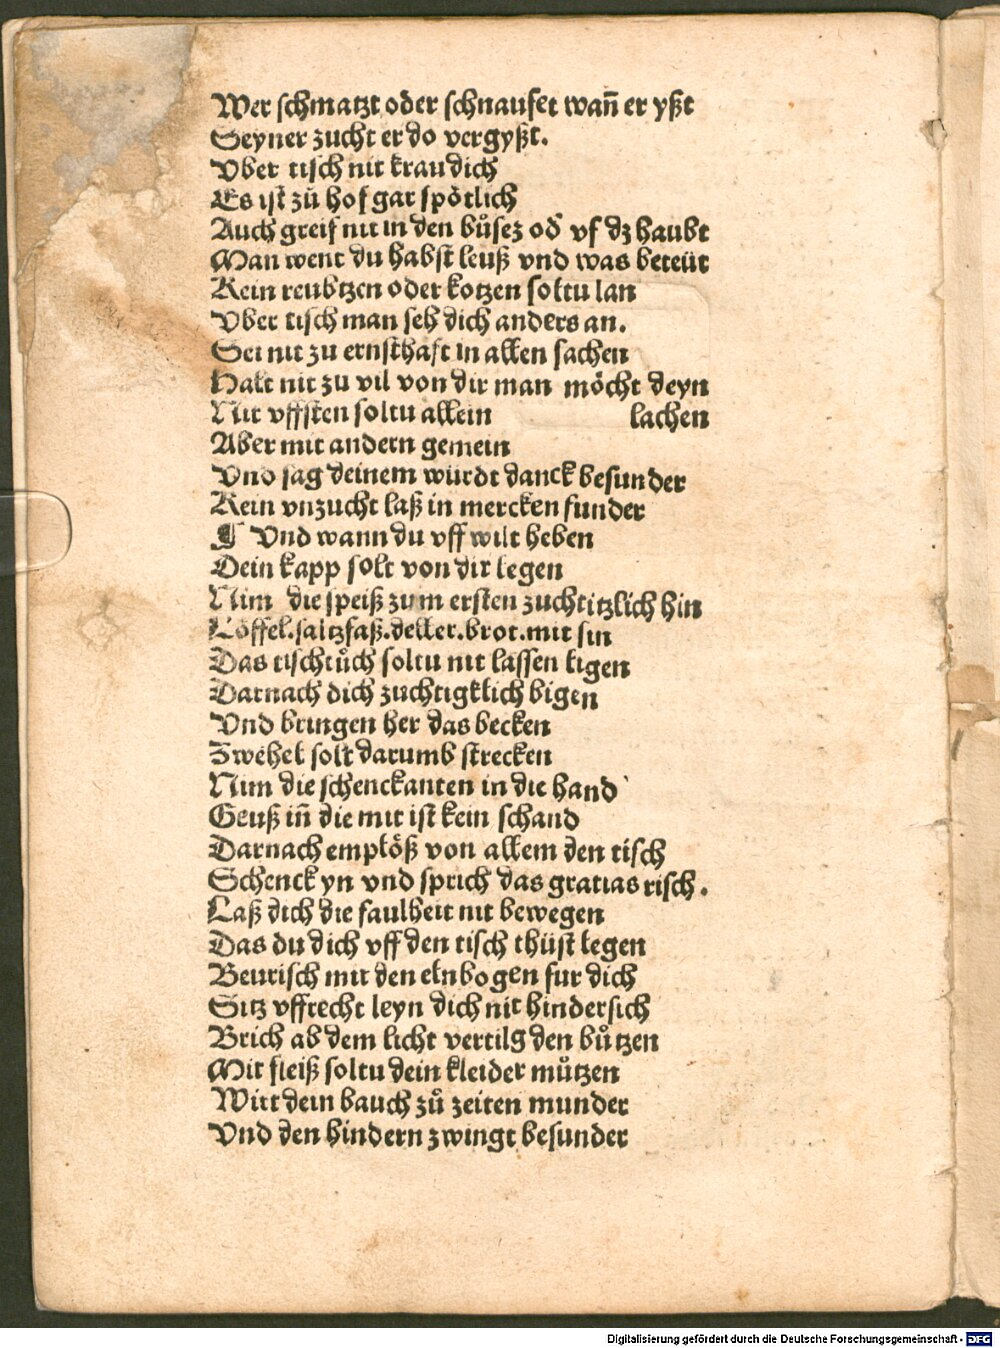 Wer schmatzt oder schnaufet wañ er yßt
Seyner zucht er do vergyßt.
Vber tisch nit krau dich
Es ist zů hof gar spötlich
Auch greif nit in den bůsez od̛ vf dz haubt
Man went du habst leuß vnd was beteüt
Kein reubtzen oder kotzen soltu lan
Vber tisch man seh dich anders an.
Sei nit zu ernsthaft in allen sachen
Halt nit zu vil von dir man möcht deyn
Nit vffsten soltu allein lachen
Aber mit andern gemein
Vnd sag deinem würdt danck besunder
Kein vnzucht laß in mercken funder
¶ Vnd wann du vff wilt heben
Dein kapp solt von dir legen
Nim die speiß zum ersten zuchtitzlich hin
Löffel.saltzfaß.deller.brot.mit sin
Das tischtůch soltu nit lassen ligen
Darnach dich zuchtigklich bigen
Vnd bringen her das becken
Zwehel solt darumb strecken
Nim die schenckanten in die hand
Geuß iñ die mit ist kein schand
Darnach emplöß von allem den tisch
Schenck yn vnd sprich das gratias risch.
Laß dich die faulheit nit bewegen
Das du dich vff den tisch thüst legen
Beurisch mit den elnbogen fur dich
Sitz vffrecht leyn dich nit hindersich
Brich ab dem licht vertilg den bůtzen
Mit fleiß soltu dein kleider můtzen
Wirt dein bauch zů zeiten munder
Vnd den hindern zwingt besunder
Digitalisierung gefördert durch die Deutsche Forschungsgemeinschaft - DFG